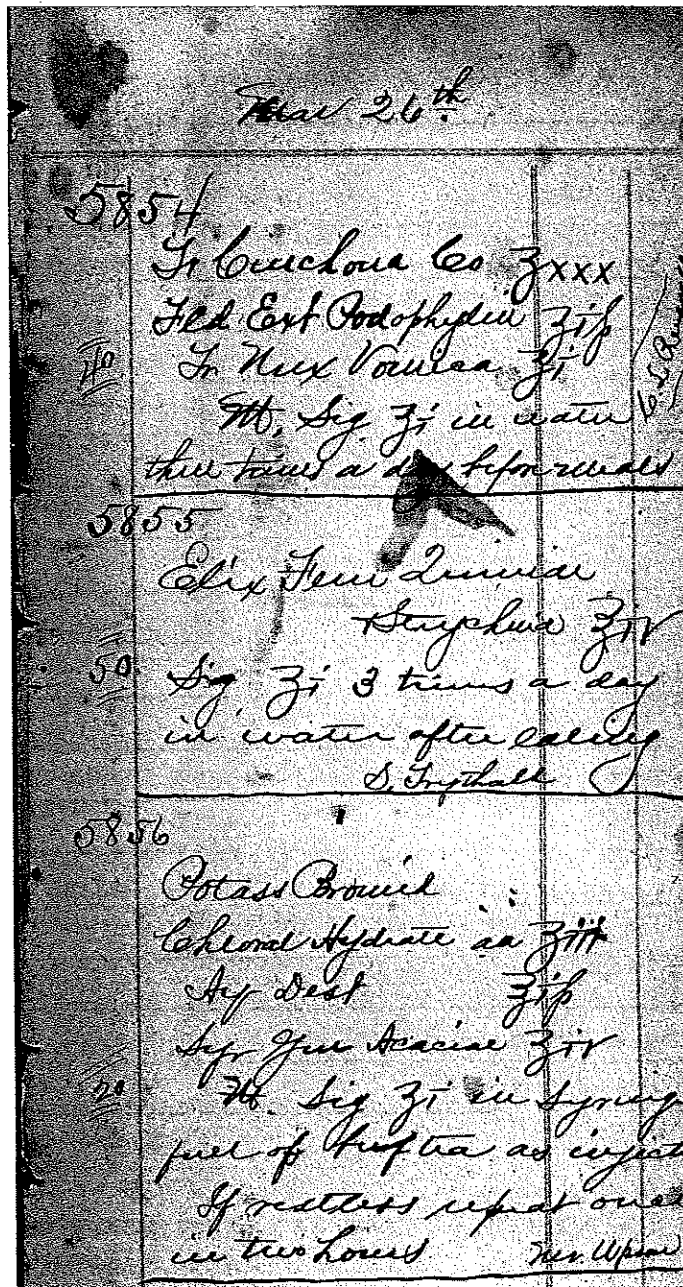 Mar 26th
5854
Tr Cinchona Co ʒxxx
Fld Ext Podophyllin ʒiſs
40
Tr Nux Vomica ʒi
M. Sig ʒi in water
three times a day before meals
5855
Elix Ferri Quiniae
Strychnia ʒiv
50
Sig ʒi 3 times a day
in water after eating
S. Trythall
5856
Potass Bromid
Chloral Hydrate aa ʒiii
Aq Dest ʒiſs
Syr Gum Acaciae ʒiv
70
M. Sig ʒi in syring
full of as inject
If restless repeat once
in two hours